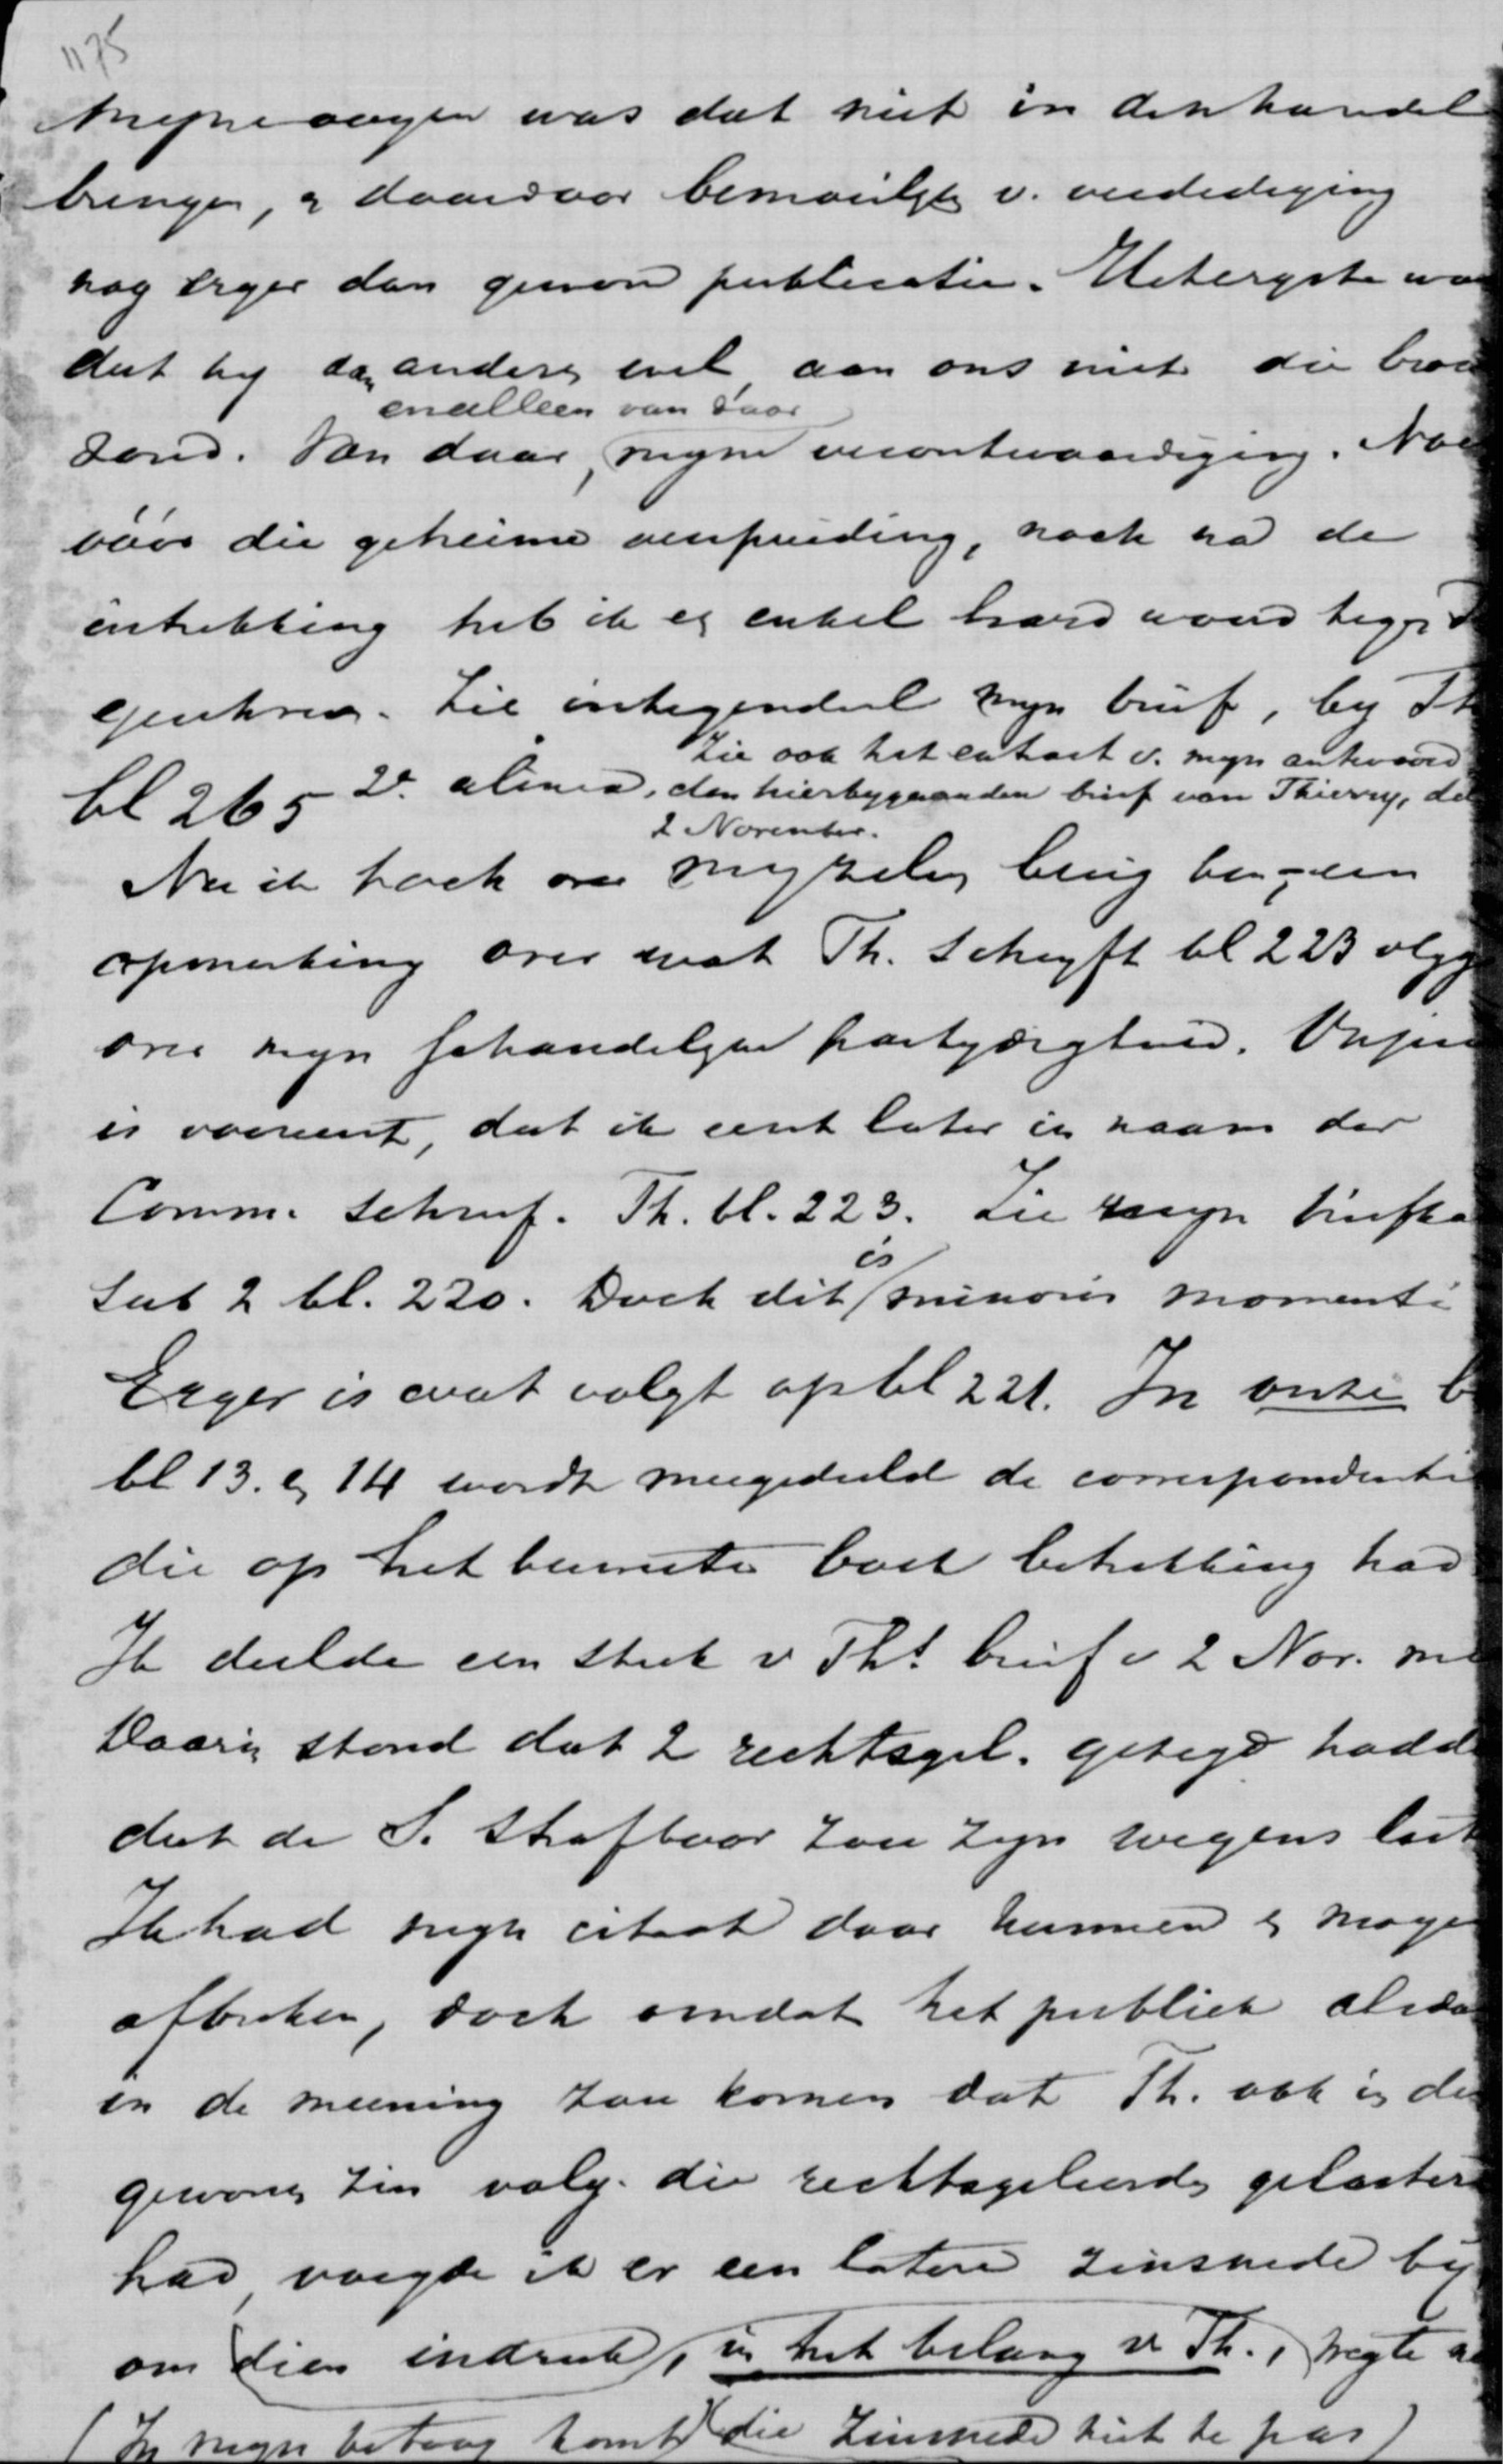 1175
mijne oogen was dat niet in den handel
brengen, & daardoor bemoeilijkg v. verdediging
nog erger dan gewone publicatie. Het ergste wa
dat hij dan anderen wel, aan ons niet die bro
en alleen van daar
zond. Van daar, mijne verontwaardiging. Noc
vóór die geheime verspreiding, noch na de
intrekking heb ik eg enkel hard woord tegen
geschreven. Zie integendeel mijn brief, bij Th
Zie ook het extract v. mijn antwoord
bl 265 2e alinea, den hierbijgaanden brief van Thierry, dd
2 November.
Nu ik toch over mijzelven bezig ben, een
opmerking over wat Th. schrijft bl 223 vlgg
over mijn schandelijke partijdigheid. Onjuis
is vooreerst, dat ik eerst later in naam der
Comm. schreef. Th. bl. 223. Zie mijn briefka
Sub 2 bl. 220. Doch dit is minoris momenti
Erger is wat volgt op bl 221. In onze b
bl 13. en 14 wordt meegedeeld de correspondentie
die op het bewuste boek betrekking had
Ik deelde een stuk v Th's brief v 2 Nov. me
Daarin stond dat 2 rechtsgel. gezegd hadd
dat de S. strafbaar zou zijn wegens last
Ik had mijn citaat daar kunnen en mogen
afbreken, doch omdat het publiek alsda
in de meening zou komen dat Th. ook in de
gewonen zin volg. die rechtsgeleerden gelaster
had, voegde ik er een latere zinsnede bij
om dien indruk, in het belang v Th., wegte n
(In mijn betoog komt die zinsnede niet te pas)